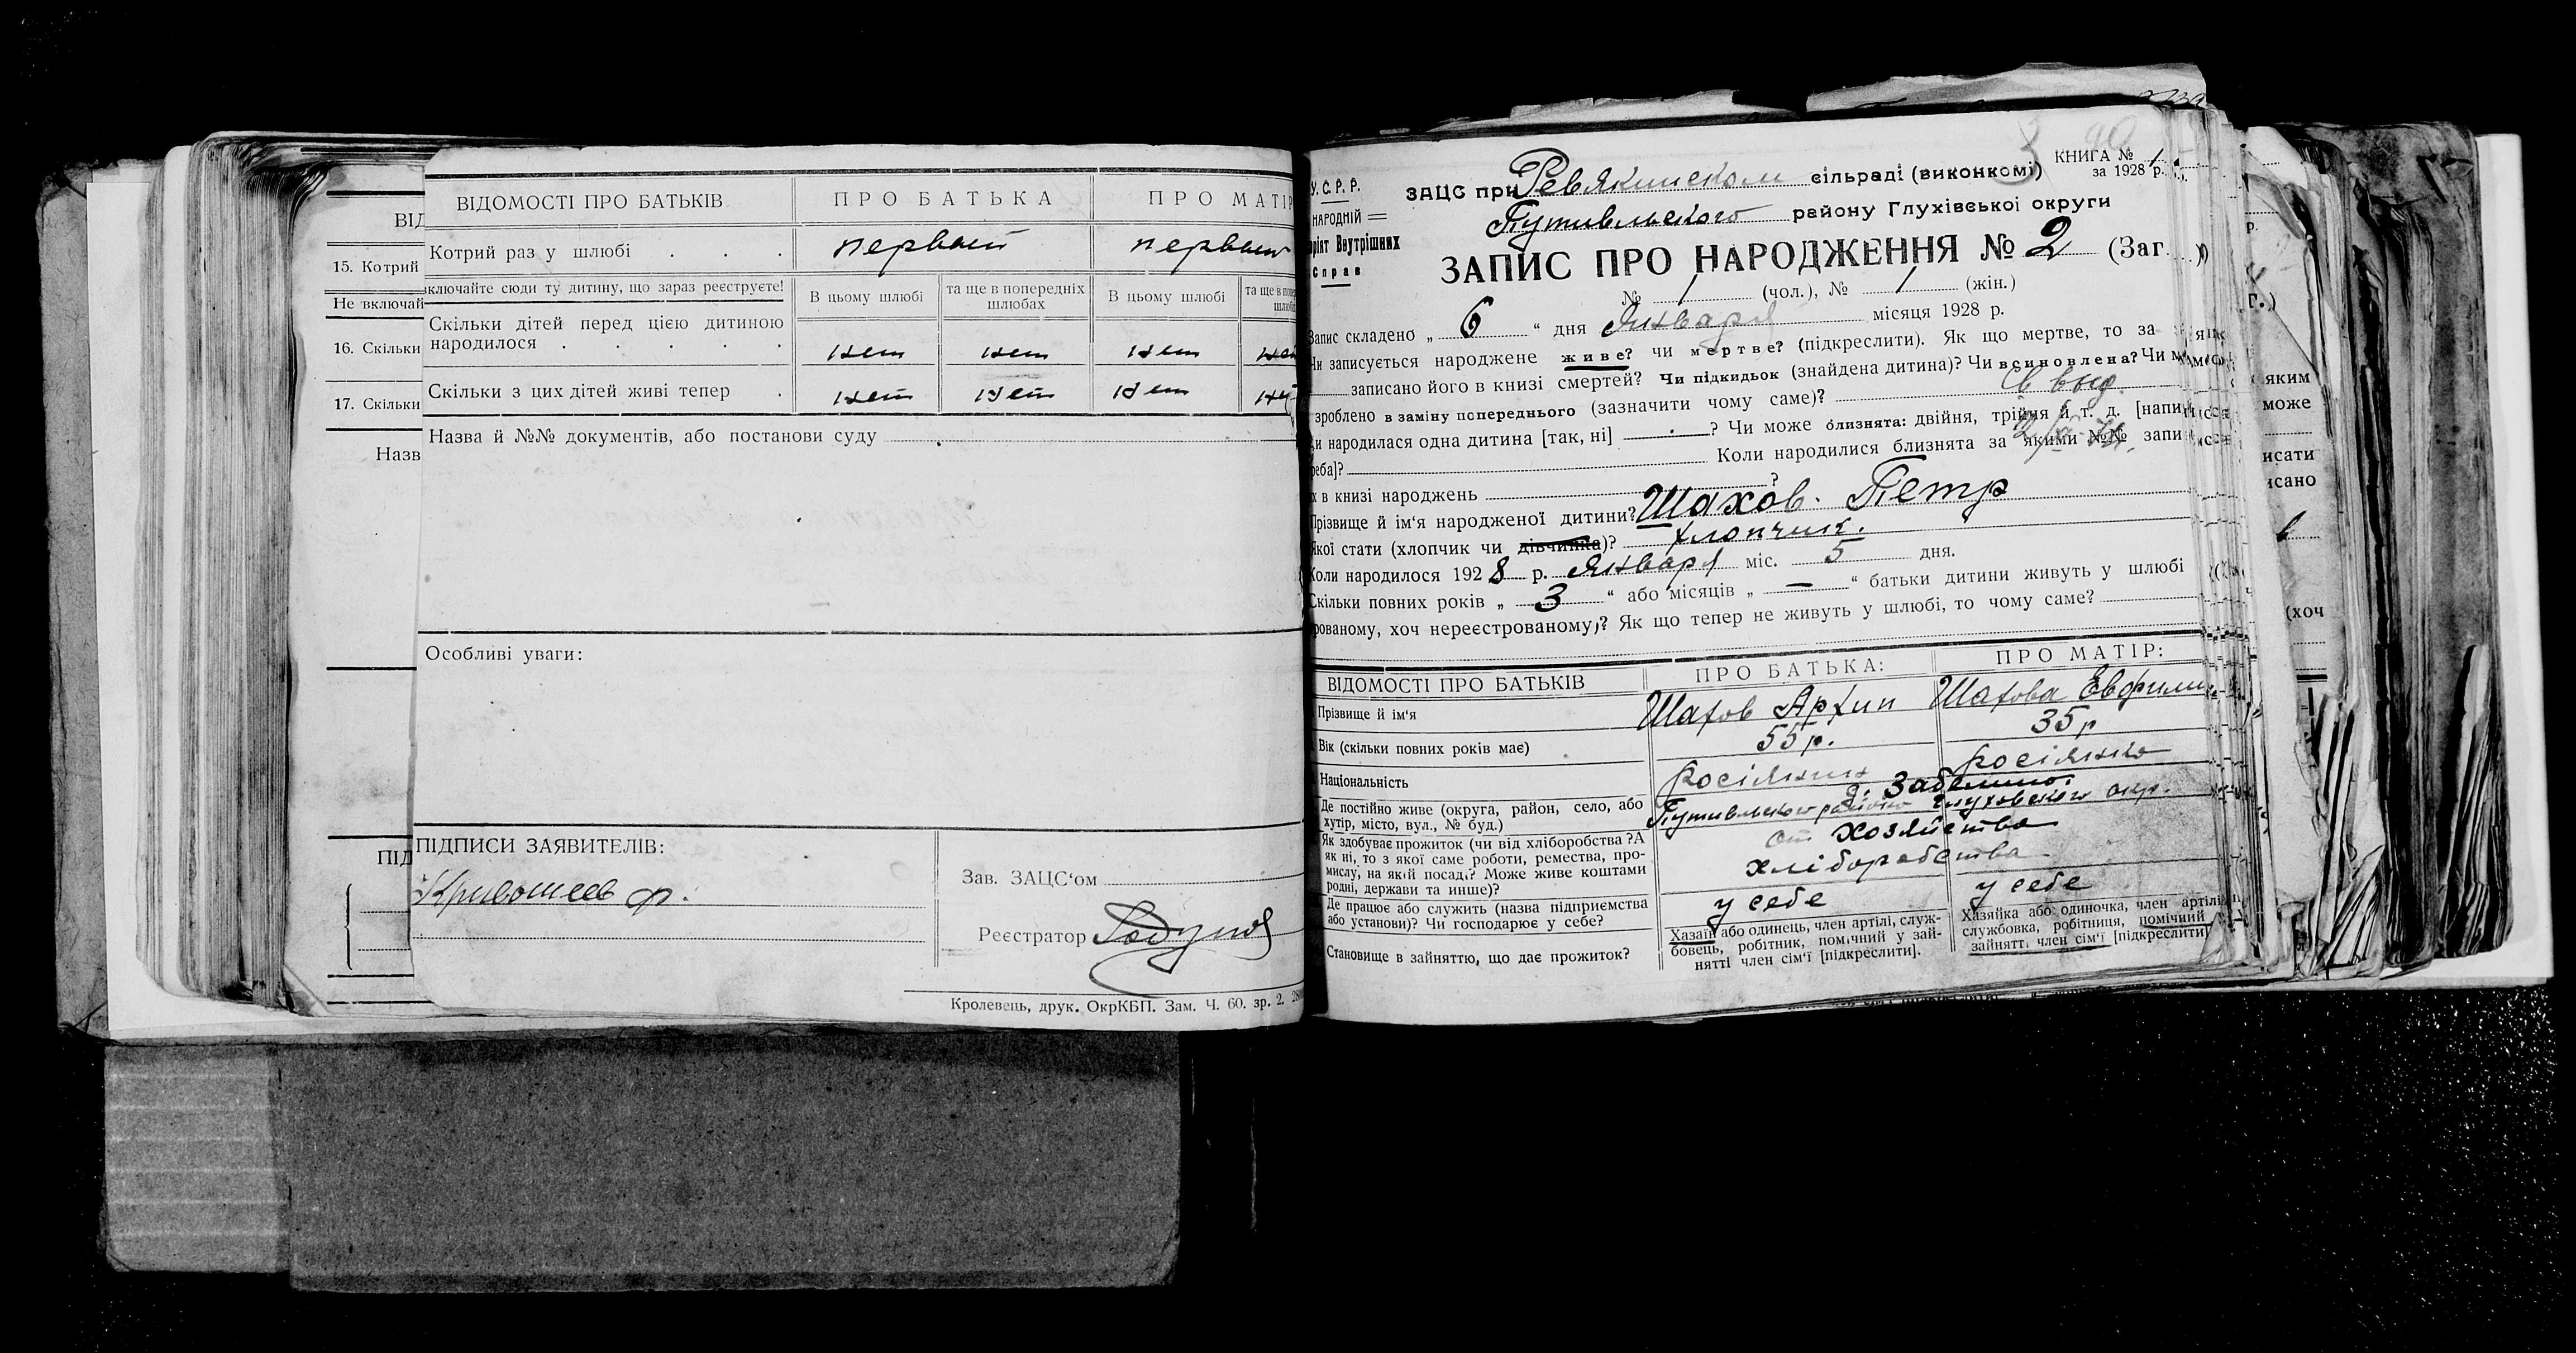 ВІД
15. Котрий
Не включай
16. Скільки
17. Скільки
Назв
ПІД
ВІДОМОСТІ ПРО БАТЬКІВ ПРО БАТЬКА ПРО МАТІР
Котрий раз у шлюбі . . . первый первый
ключайте сюди ту дитину, що зараз реєструєте! В цьому шлюбі та ще в попередніх шлюбах В цьому шлюбі та ще в
Скільки дітей перед цією дитиною
народилося . . . . . нет нет нет нет
Скільки з цих дітей живі тепер . нет нет нет
Назва й №№ документів, або постанови суду
Особливі уваги:
ПІДПИСИ ЗАЯВИТЕЛІВ:
Кривошеев Ф.
Зав. ЗАЦС‘ом
Реєстратор
Кролевець, друк. ОкрКБП. Зам. Ч. 60. зр. 2.
У. С. Р. Р.
НАРОДНІЙ
Внутрішних
Справ
КНИГА № 1
за 1928 р.
ЗАЦС при Ревякинском сільраді (виконкомі)
Путивльского району Глухівської округи
ЗАПИС ПРО НАРОДЖЕННЯ № 2 (Заг. )
№ 1 (чол.), № 1 (жін.)
Запис складено „ 6 “ дня Января місяця 1928 р.
Чи записується народжене живе? чи мертве? (підкреслити). Як що мертве, то за
записано його в книзі смертей? Чи підкидьок (знайдена дитина)? Чи всиновлена? Чи
зроблено в заміну попереднього (зазначити чому саме)?
и народилася одна дитина [так, ні] ? Чи може близнята: двійня, трійня й т. д. [напи
реба]? Коли народилися близнята за якими №№ запи
х в книзі народжень ?
Прізвище й ім‘я народженої дитини? Шахов. Петр
Якої стати (хлопчик чи дівчинка)? хлопчик.
Коли народилося 1928 р. Января міс. 5 дня.
Скільки повних років „ 3 “ або місяців „ — “ батьки дитини живуть у шлюбі
рованому, хоч нереєстрованому)? Як що тепер не живуть у шлюбі, то чому саме?
ВІДОМОСТІ ПРО БАТЬКІВ ПРО БАТЬКА: ПРО МАТІР:
Прізвище й ім‘я Шахов Архип Шахова
Вік (скільки повних років має) 55 р. 35 р
Національність росіянин росіянка
Де постійно живе (округа, район, село, або
хутір, місто, вул., № буд.) Путивльского району Глуховского окр.
Як здобуває прожиток (чи від хліборобства? А
як ні, то з якої саме роботи, ремества, про-
мислу, на якій посаді? Може живе коштами
родні, держави та инше)? от хозяйства
хліборобства
Де працює або служить (назва підприємства
або установи)? Чи господарює у себе? у себе у себе
Становище в зайняттю, що дає прожиток?
Хазаїн або одинець, член артілі, служ-
бовець, робітник, помічний у зай-
нятті член сім‘ї [підкреслити].
Хазяйка або одиночка, член артілі
службовка, робітниця, помічний
зайнятті член сім‘ї [підкреслити]
яким
може
исати
исано
(хоч